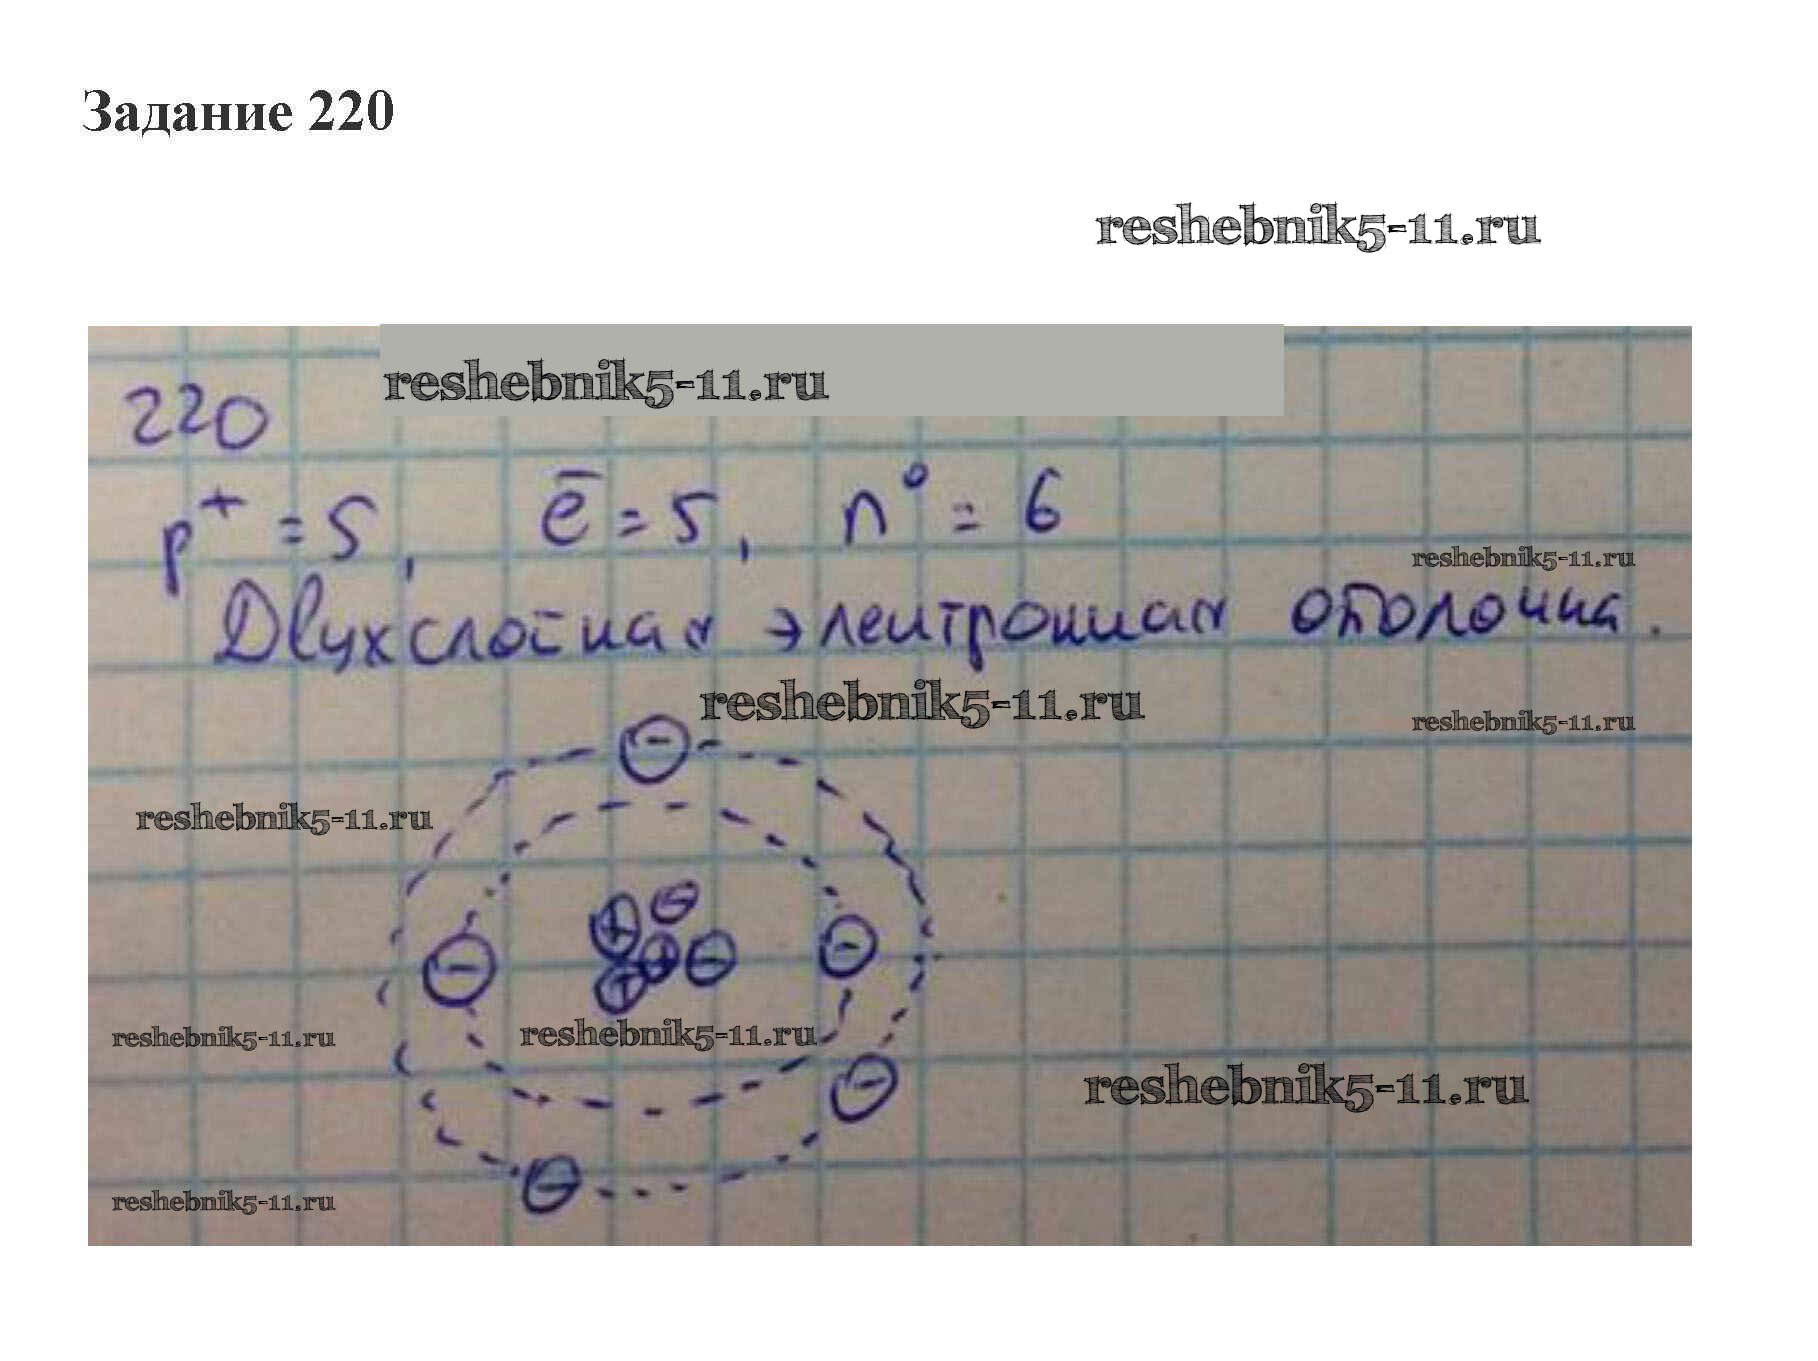 Задание 220
reshebnik5-11.ru
reshebnik5-11.ru
220
p⁺ = 5, e̅ = 5, n⁰ = 6
reshebnik5-11.ru
Двухслойная электронная оболочка.
reshebnik5-11.ru
reshebnik5-11.ru
−
reshebnik5-11.ru
+ −
− + − −
+
reshebnik5-11.ru
reshebnik5-11.ru
reshebnik5-11.ru
−
−
reshebnik5-11.ru